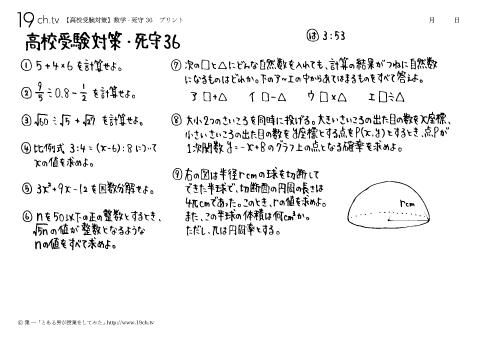 19ch.tv 【高校受験対策】数学・死守36 プリント 月 日
高校受験対策・死守36
は 3:53
① 5+4×6を計算せよ。
② 9/5÷0.8-1/2を計算せよ。
③ √60÷√5+√27を計算せよ。
④ 比例式 3:4=(x-6):8について
xの値を求めよ。
⑤ 3x²+9x-12を因数分解せよ。
⑥ nを50以下の正の整数とするとき、
√5nの値が整数となるような
nの値をすべて求めよ。
⑦ 次の□と△にどんな自然数を入れても、計算の結果がつねに自然数
になるものはどれか。下のア~エの中からあてはまるものをすべて答えよ。
ア □+△ イ □-△ ウ □×△ エ □÷△
⑧ 大小2つのさいころを同時に投げる。大きいさいころの出た目の数をx座標、
小さいさいころの出た目の数をy座標とする点をP(x,y)とするとき、点Pが
1次関数y=-x+8のグラフ上の点となる確率を求めよ。
⑨ 右の図は半径rcmの球を切断して
できた半球で、切断面の円周の長さは
4πcmであった。このとき、rの値を求めよ。
また、この半球の体積は何cm³か。
ただし、πは円周率とする。
rcm
© 葉一「とある男が授業をしてみた」http://www.19ch.tv